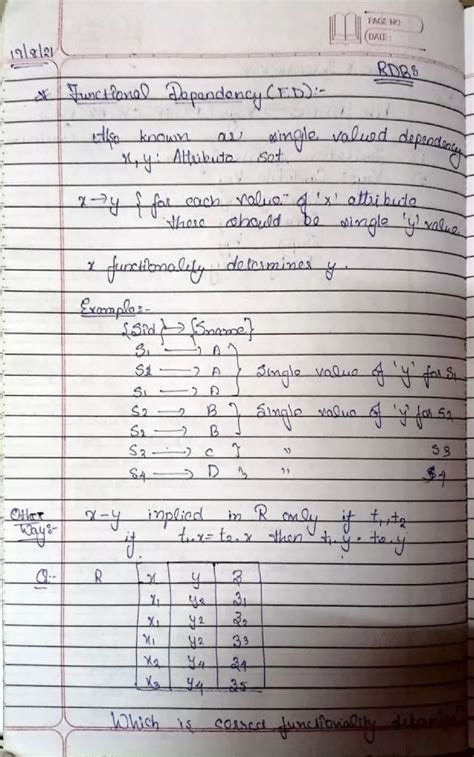 PAGE NO
DATE:
19/8/21
RDBS
* Functional Dependency (FD):-
Also known as single valued dependency
x, y: Attribute set.
x→y { for each value of 'x' attribute
there should be single 'y' value
x functionality determines y.
Example:-
{Sid} → {Sname}
S1 → A
S2 → A } Single value of 'y' for S1
S1 → A
S2 → B } Single value of 'y' for S2
S2 → B
S3 → C } " S3
S4 → D } " S4
Other Ways:-
x-y implied in R only if t1, t2
if t1.x = t2.x then t1.y = t2.y
Q:- R
x y z
x1 y2 z1
x1 y2 z2
x1 y2 z3
x2 y4 z4
x3 y4 z5
Which is correct functionality